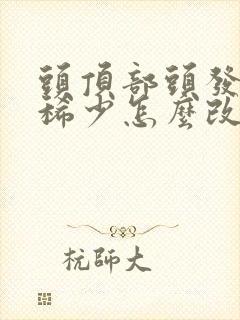 頭頂部頭發
稀少怎麼改
杭師大